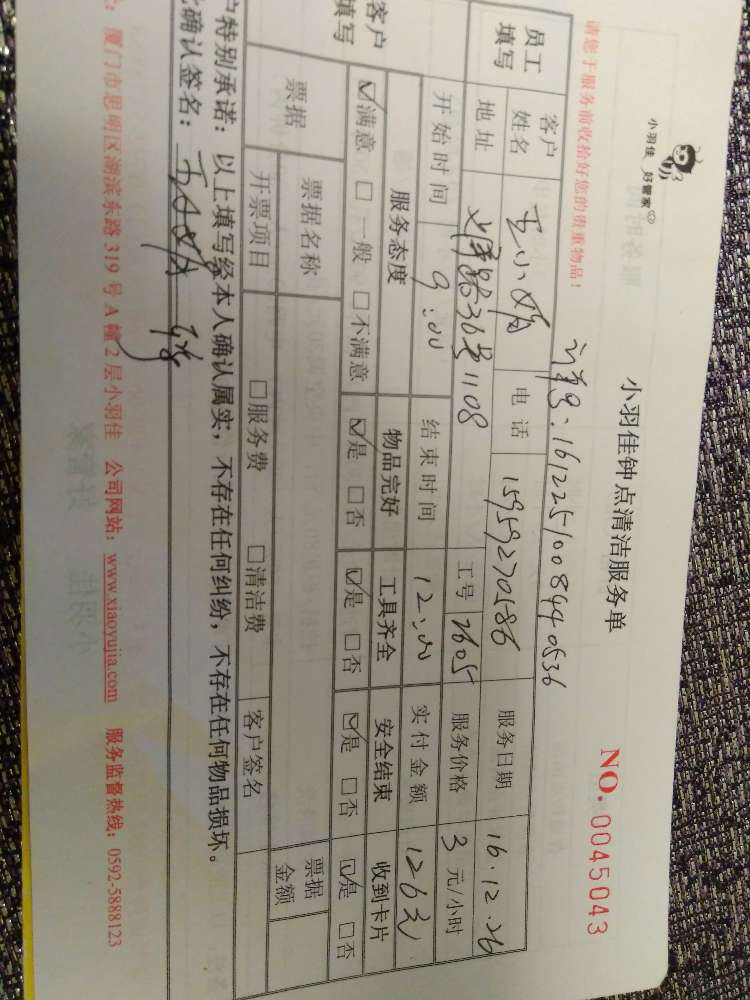 小羽佳 好管家
小羽佳钟点清洁服务单
NO. 0045043
请您于服务前收拾好您的贵重物品！
订单号：161225100844 0536
员工填写 客户姓名 王小娟 电话 15959270586 服务日期 16.12.26
地址 36号1108 工号 2605 服务价格 3 元/小时
开始时间 9:00 结束时间 12:00 实付金额 126元
客户填写 服务态度 物品完好 工具齐全 安全结束 收到卡片
☑满意 □一般 □不满意 ☑是 □否 ☑是 □否 ☑是 □否 ☑是 □否
票据 票据名称 票据金额
开票项目 □服务费 □清洁费 客户签名
户特别承诺：以上填写经本人确认属实，不存在任何纠纷，不存在任何物品损坏。
确认签名：
厦门市思明区湖滨东路 319 号 A 幢 2 层小羽佳 公司网站：www.xiaoyujia.com 服务监督热线：0592-5888123